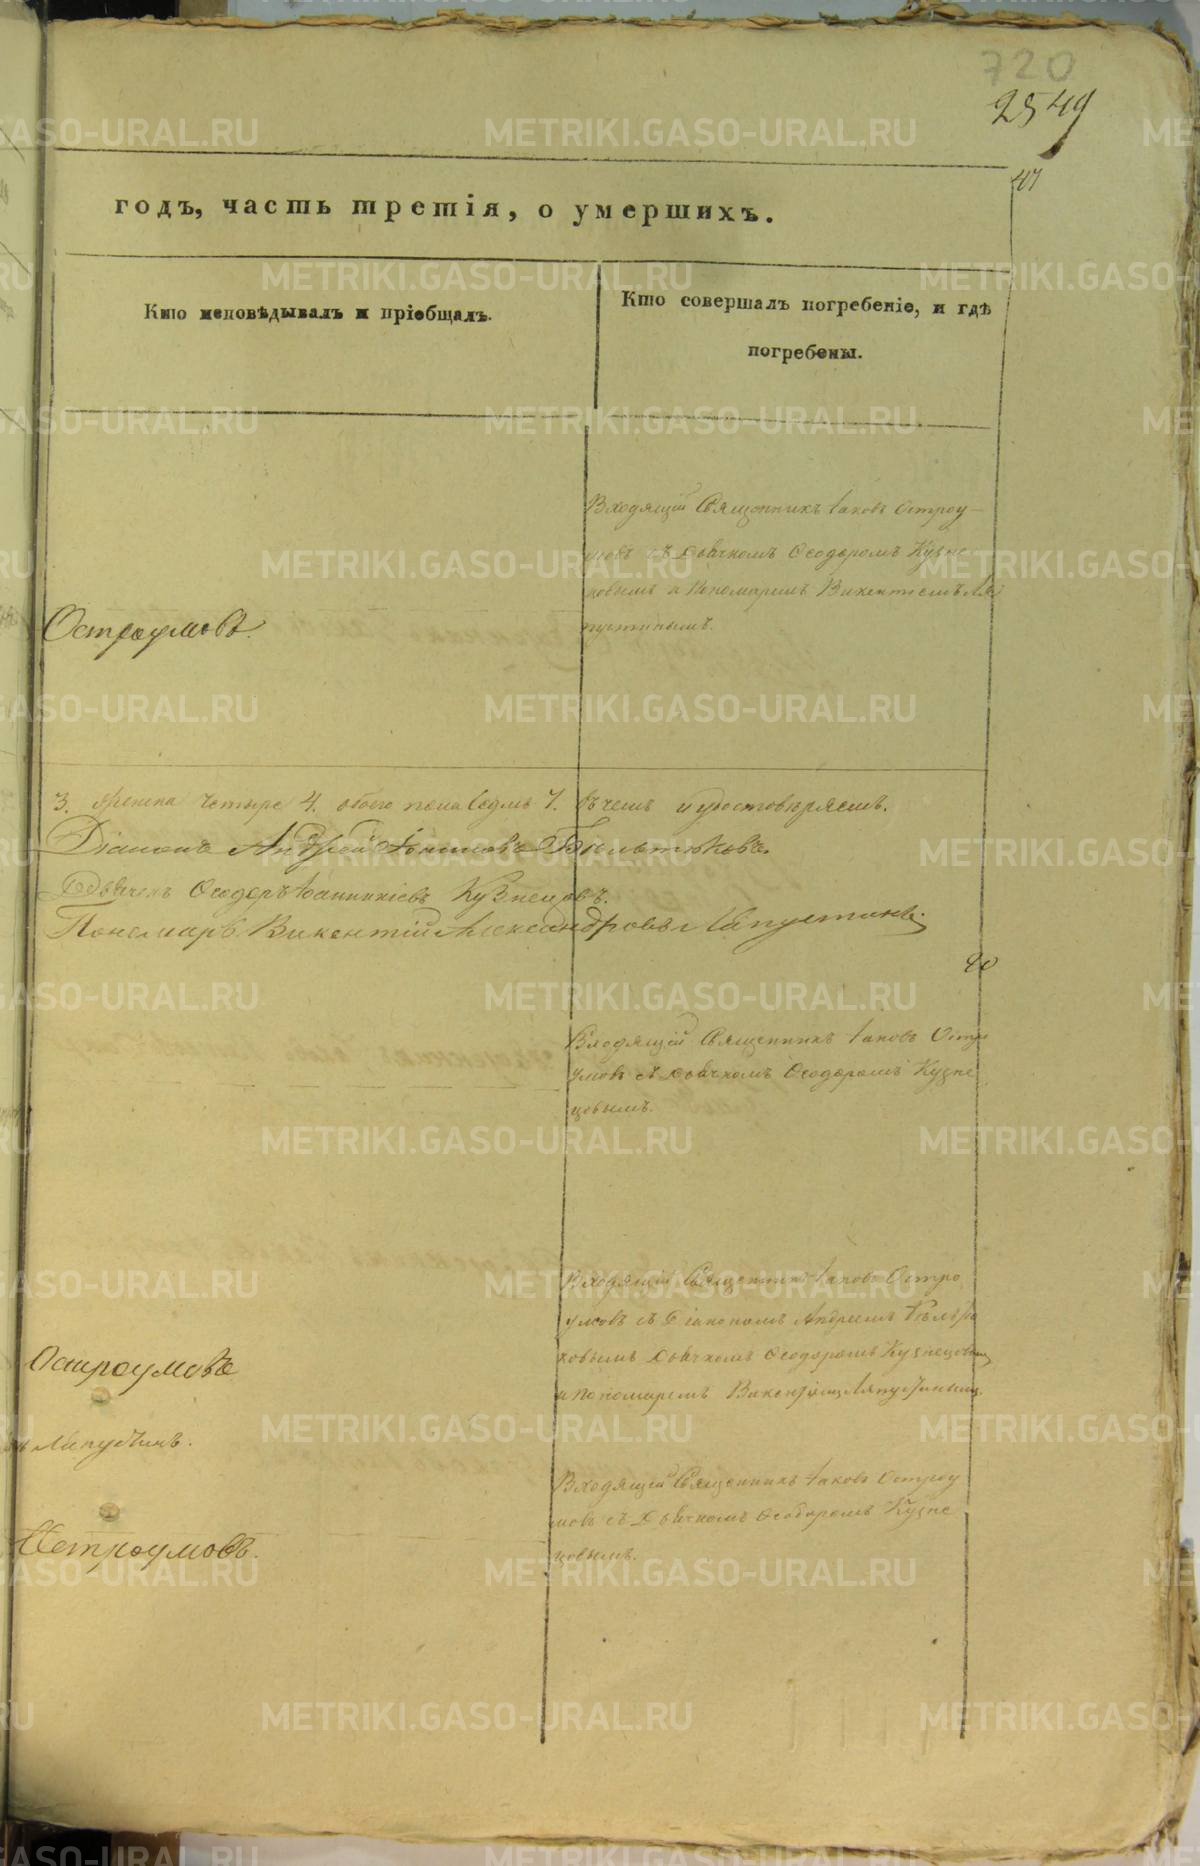 720
2549
годъ, часть третія, о умершихъ.
Кто исповѣдывалъ и пріобщалъ.
Кто совершалъ погребеніе, и гдѣ
погребены.
Входящій Священникъ Іаковъ Остроу-
мовъ съ Дьячкомъ Ѳеодоромъ Кузне
цовымъ и Пономаремъ Викентіемъ Ля
пустинымъ.
Остроумовъ.
3. Женска четыре 4. обоего пола Седмь 7. въ чемъ и удостовѣряемъ.
Діаконъ Андрей
Дьячекъ Ѳеодоръ Іоанникіевъ Кузнецовъ.
Пономарь Викентій Александровъ Ляпустинъ.
Входящій Священникъ Іаковъ Остро
умовъ съ Дьячкомъ Ѳеодоромъ Кузне
цовымъ.
Входящій Священникъ Іаковъ Остро
умовъ съ Діакономъ Андреемъ
Дьячкомъ Ѳеодоромъ Кузнецовымъ
и Пономаремъ Викентіемъ Ляпустинымъ.
Остроумовъ
Ляпустинъ.
Входящій Священникъ Іаковъ Остроу
мовъ съ Дьячкомъ Ѳеодоромъ Кузне
цовымъ.
Остроумовъ.
METRIKI.GASO-URAL.RU